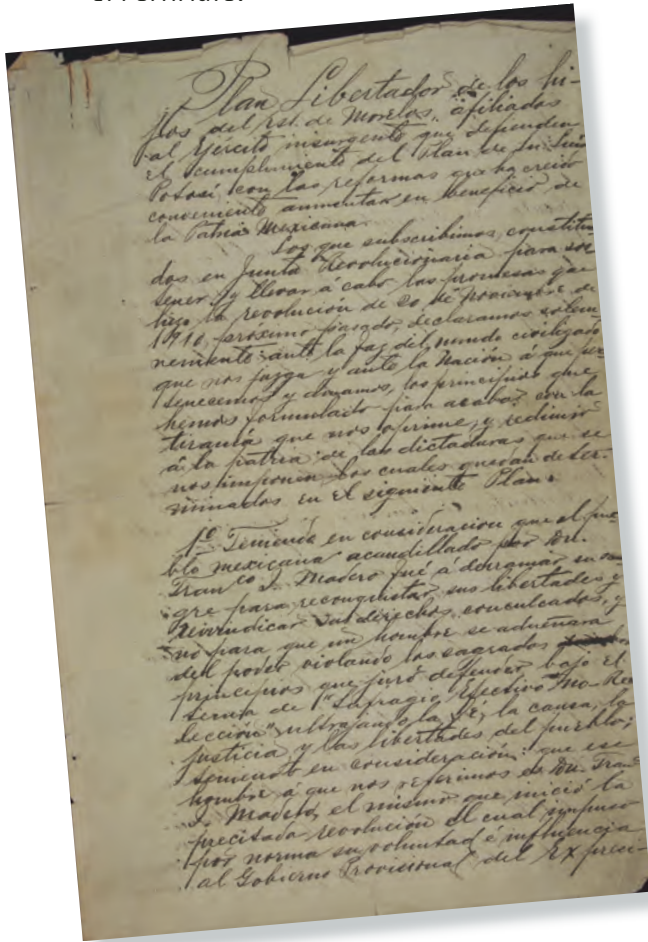 Plan Libertador de los hi-
jos del Est. de Morelos, afiliados
al Ejército insurgente que defienden
el cumplimiento del Plan de Sn. Luis
Potosí con las reformas que ha creido
conveniente aumentar en beneficio de
la Patria Mexicana.
Los que subscribimos, constitui
dos en Junta Revolucionaria para sos
tener y llevar á cabo las promesas que
hizo la revolución de 20 de Noviembre de
1910, próximo pasado, declaramos solem
nemente ante la faz del mundo civilizado
que nos juzga y ante la Nación á que per
tenecemos y amamos, los principios que
hemos formulado para acabar con la
tiranía que nos oprime y redimir
á la patria de las dictaduras que se
nos imponen los cuales quedan deter-
minados en el siguiente Plan.
1º Teniendo en consideración que el pue
blo mexicano acaudillado por Dn.
Franco I. Madero fué á derramar su san
gre para reconquistar sus libertades y
reivindicar sus derechos conculcados, y
no para que un hombre se adueñara
del poder violando los sagrados
principios que juró defender bajo el
lema de "Sufragio Efectivo No Ree
lección" ultrajando la fé, la causa, la
justicia y las libertades del pueblo;
teniendo en consideración: que ese
hombre á que nos referimos es Dn. Fran
I. Madero, el mismo que inició la
precitada revolución el cual impuso
por norma su voluntad é influencia
al Gobierno Provisional del Ex presi-